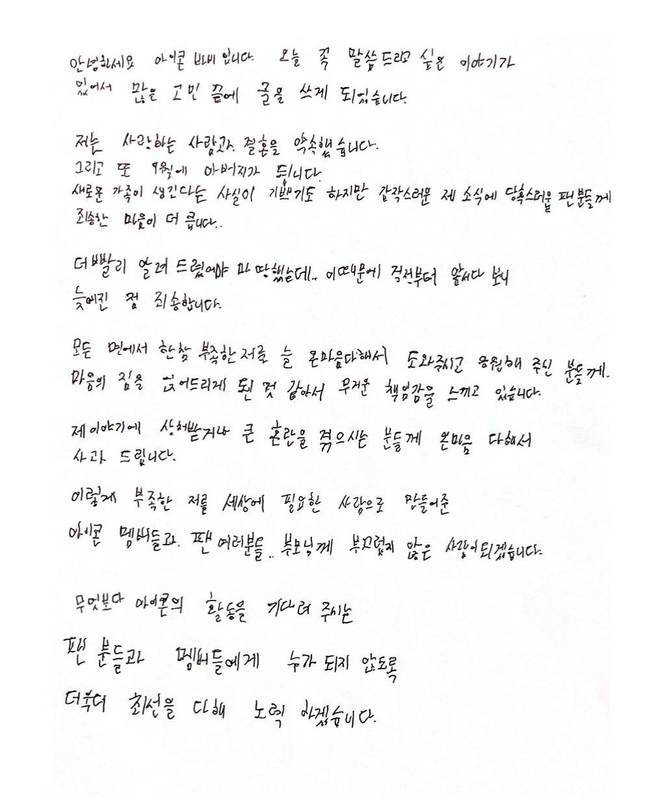 안녕하세요 아이콘 바비 입니다. 오늘 꼭 말씀드리고 싶은 이야기가
있어서 많은 고민 끝에 글을 쓰게 되었습니다.
저는 사랑하는 사람과 결혼을 약속했습니다.
그리고 또 9월에 아버지가 됩니다.
새로운 가족이 생긴다는 사실이 기쁘기도 하지만 갑작스러운 제 소식에 당혹스러울 팬분들께
죄송한 마음이 더 큽니다..
더 빨리 알려 드렸어야 마땅했는데.. 이 때문에 걱정부터 앞서다 보니
늦어진 점 죄송합니다.
모든 면에서 한참 부족한 저를 늘 온마음다해서 도와주시고 응원해 주신 분들께.
마음의 짐을 얹어드리게 된 것 같아서 무거운 책임감을 느끼고 있습니다.
제이야기에 상처받거나 큰 혼란을 겪으시는 분들께 온마음 다해서
사과 드립니다.
이렇게 부족한 저를 세상에 필요한 사람으로 만들어준
아이콘 멤버들과. 팬 여러분들.. 부모님께 부끄럽지 않은 사람이되겠습니다.
무엇보다 아이콘의 활동을 기다려 주시는
팬 분들과 멤버들에게 누가 되지 않도록
더욱더 최선을 다해 노력 하겠습니다.